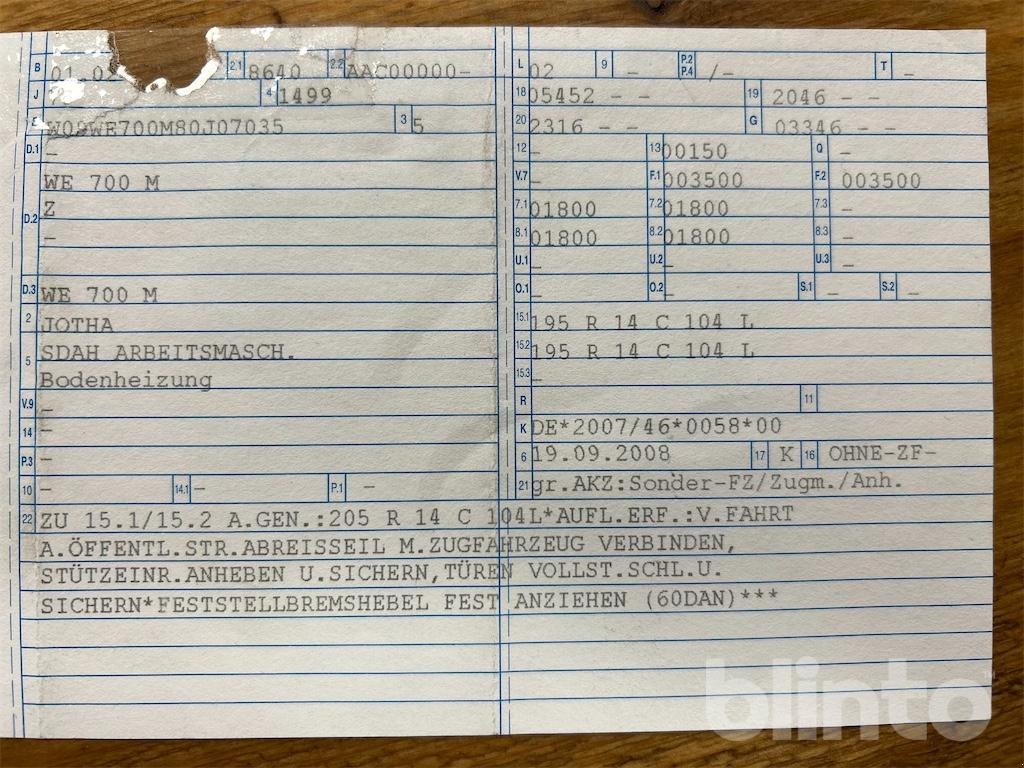 B 01.0 2.1 8640 2.2 AAC00000-
J 4 1499
E W09WE700M80J07035 3 5
D.1 -
WE 700 M
D.2 Z
-
D.3 WE 700 M
2 JOTHA
5 SDAH ARBEITSMASCH.
Bodenheizung
V.9 -
14 -
P.3 -
10 - 14.1 - P.1 -
L 02 9 - P.2 P.4 /- T -
18 05452 - - 19 2046 - -
20 2316 - - G 03346 - -
12 - 13 00150 Q -
V.7 - F.1 003500 F.2 003500
7.1 01800 7.2 01800 7.3 -
8.1 01800 8.2 01800 8.3 -
U.1 - U.2 - U.3 -
O.1 - O.2 - S.1 - S.2 -
15.1 195 R 14 C 104 L
15.2 195 R 14 C 104 L
15.3 -
R 11
K DE*2007/46*0058*00
6 19.09.2008 17 K 16 OHNE-ZF-
21 gr.AKZ:Sonder-FZ/Zugm./Anh.
22 ZU 15.1/15.2 A.GEN.:205 R 14 C 104L*AUFL.ERF.:V.FAHRT
A.ÖFFENTL.STR.ABREISSEIL M.ZUGFAHRZEUG VERBINDEN,
STÜTZEINR.ANHEBEN U.SICHERN,TÜREN VOLLST.SCHL.U.
SICHERN*FESTSTELLBREMSHEBEL FEST ANZIEHEN (60DAN)***
blinto